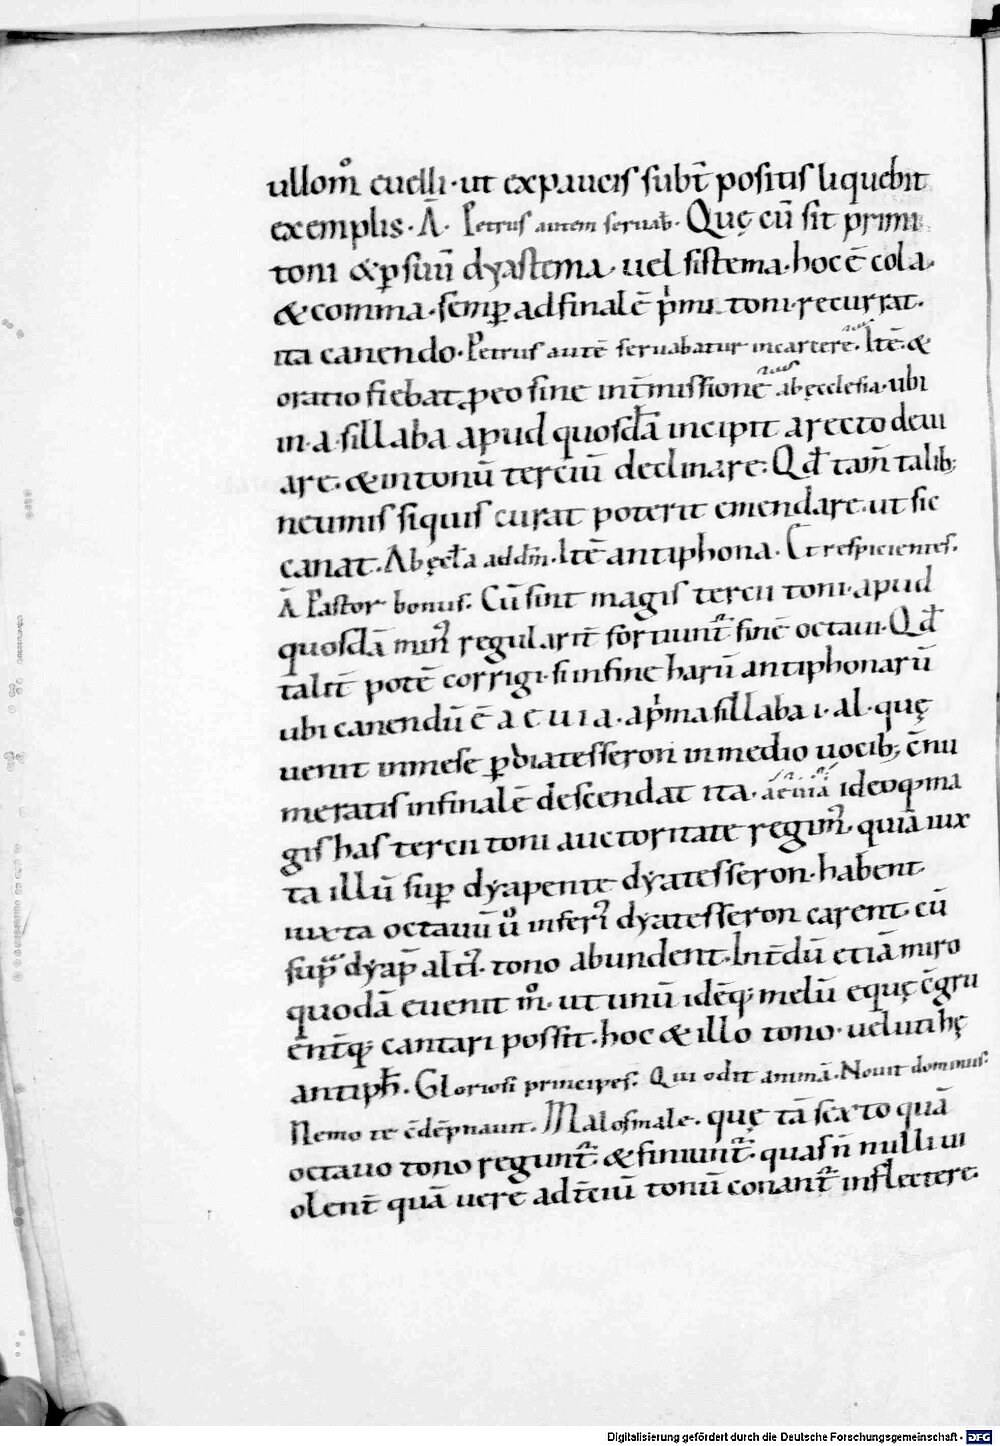 ullom̊ euelli · ut expaucis subt̄ positis liquebit
exemplis · Ā · Petrus autem seruab̄ · Quę cū sit primi
toni & ꝑ suū dyastema · uel sistema · hoc ē cola ·
& comma · semꝑ ad finalē p̍mi toni · recurrat ·
ita canendo · Petrus autē seruabatur incarcere · Itē · &
oratio fiebat ꝓeo sine int̄missione abęcclesia · ubi
in · a · sillaba apud quosdā incipit arecto deui
are · & intonū terciū declinare · Qd̄ tam̄ talib;
neumis siquis curat poterit emendare · ut sic
canat · Abęcl̄a addm̄ · Itē antiphona · Et respicientes ·
Ā Pastor bonus · Cū sint magis tercii toni · apud
quosdā min᷒ regularit̄ sortiunt᷒ finē octaui · Qd̄
talit̄ potē corrigi · si infine harū antiphonarū
ubi canendū ē a e u i a · ap̍ma sillaba i · al · quę
uenit inmese ꝑ diatesseron inmedio uocib; c̄nu
meratis infinalē descendat ita · aeuia ideoq; ma
gis has tercii toni auctoritate regim᷒ · quia iux
ta illū suꝑ dyapente dyatesseron · habent ·
iuxta octauū u̍ō inferi᷒ dyatesseron carent · cū
sup᷒ dyap̄ alti᷒ · tono abundent · Int̄dū etiā miro
quodā euenit m̊ · ut unū idēq; melū equę c̄gru
ent̄q; cantari possit · hoc & illo tono · ueluti hę
antiph̄ · Gloriosi principes · Qui odit animā · Nouit dominus ·
Nemo te c̄dēpnauit · Malosmale · quę tā sexto quā
octauo tono regunt᷒ · & finiunt᷒ · quas n̄ nulli ui
olent̄ quā uere adt̄ciū tonū conant᷒ inflectere ·
Digitalisierung gefördert durch die Deutsche Forschungsgemeinschaft - DFG